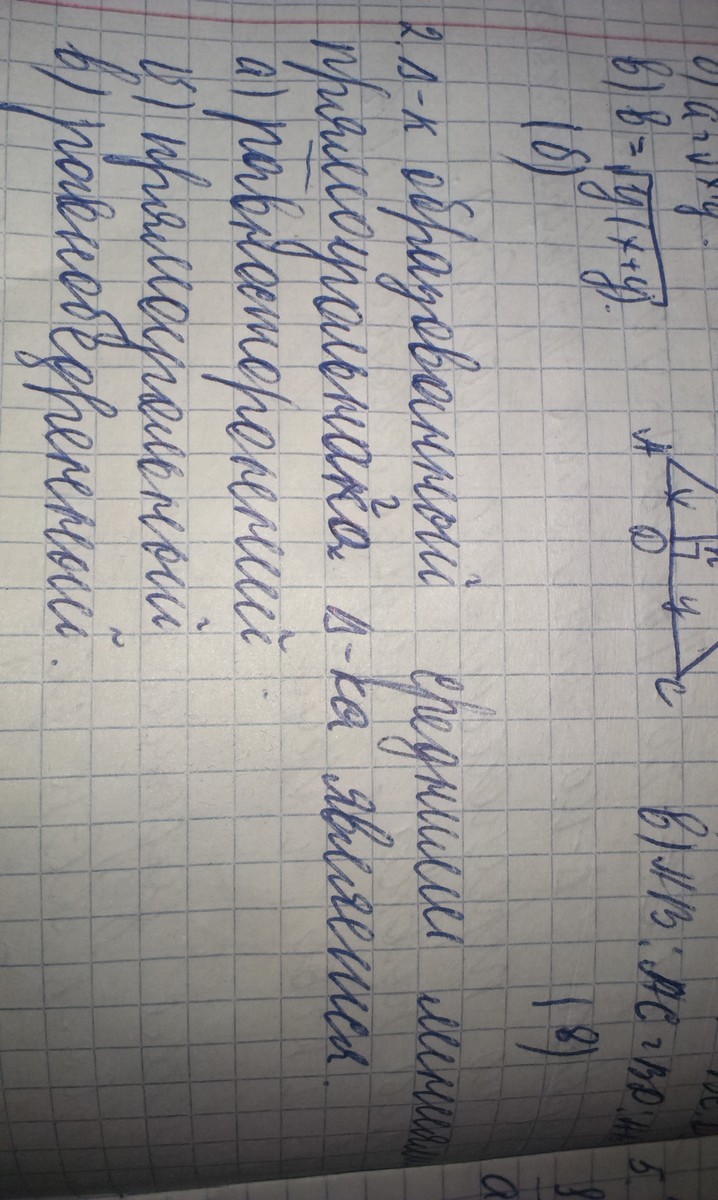 б) a = √xy.
в) в = √y(x+y).
(б)
A
D
C
x
y
в) AB : AC = BD :
(8)
2. Δ-к образованный средними линиями
прямоугольного Δ-ка является.
а) равносторонний.
б) прямоугольный
в) равнобедренный.